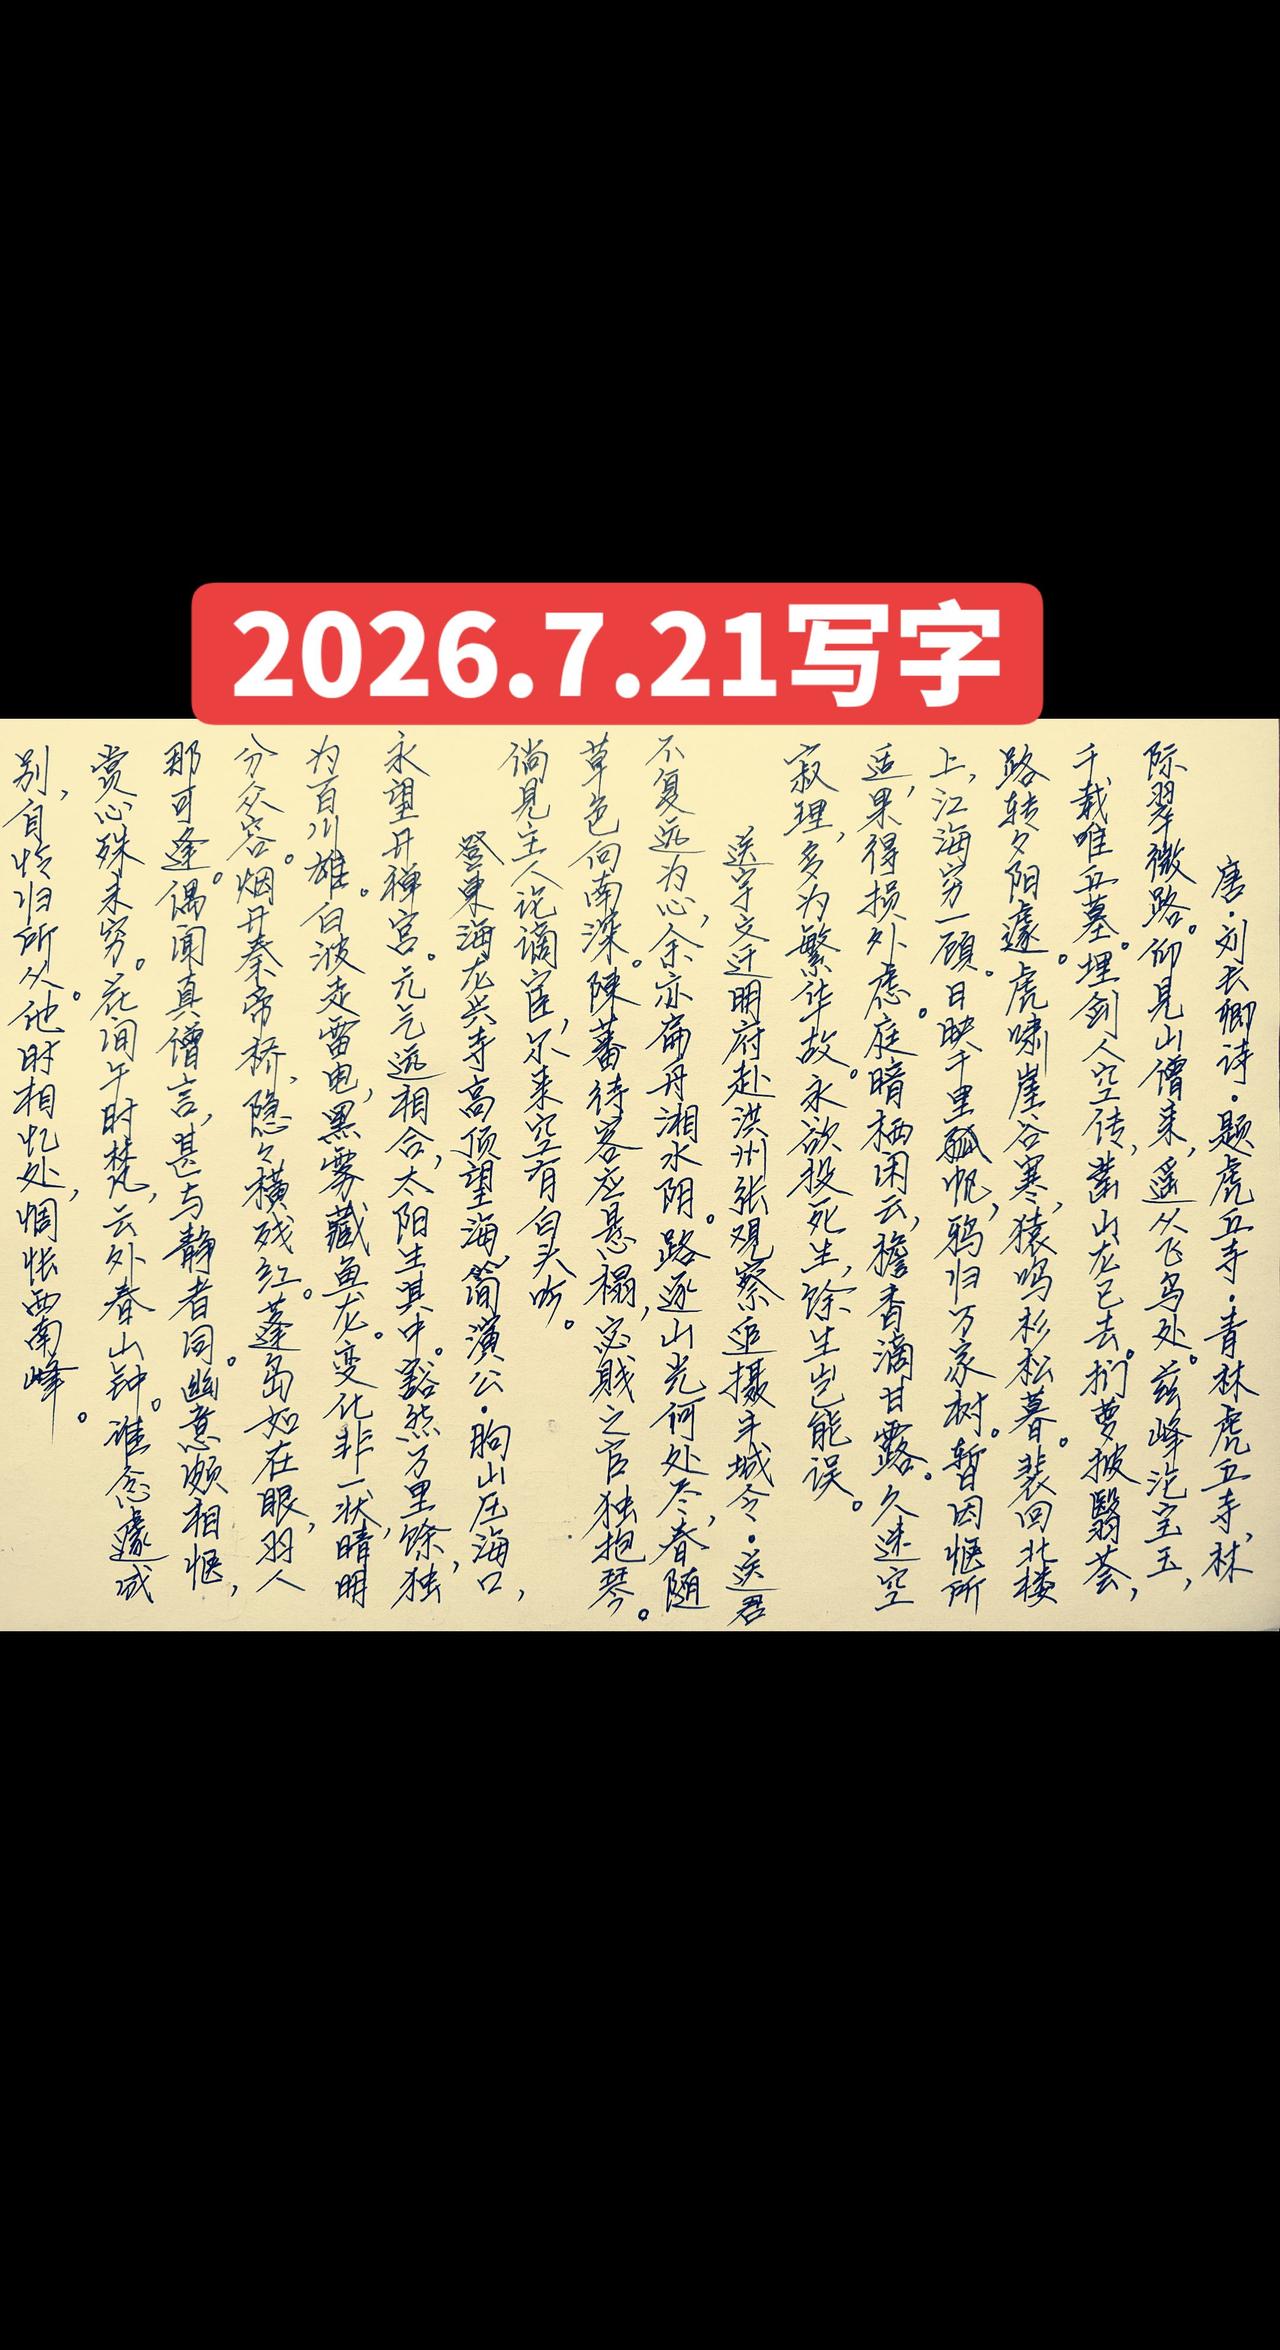 2026.7.21写字
唐·刘长卿诗·题虎丘寺·青林虎丘寺，林
际翠微路。仰见山僧来，遥从飞鸟处。兹峰沦宝玉，
千载唯丘墓。埋剑人空传，凿山龙已去。扪萝披翳荟，
路转夕阳遽。虎啸崖谷寒，猿鸣杉松暮。裴回北楼
上，江海穷一顾。日映千里孤帆，鸦归万家树。暂因惬所
适，果得损外虑。庭暗栖闲云，檐香滴甘露。久迷空
寂理，多为繁华故。永欲投死生，馀生岂能误。
送宇文迁明府赴洪州张观察追摄丰城令·送君
不复远为心，余亦扁舟湘水阴。路逐山光何处尽，春随
草色向南深。陳蕃待客应悬榻，宓賤之官独抱琴。
倘见主人论谪宦，尔来空有白头吟。
登東海龙兴寺高顶望海，简演公·朐山压海口，
永望开禅宫。元气远相合，太阳生其中。豁然万里馀，独
为百川雄。白波走雷电，黑雾藏鱼龙。变化非一状，晴明
分众容。烟开秦帝桥，隐々横残红。蓬岛如在眼，羽人
那可逢。偶闻真僧言，甚与静者同。幽意颇相惬，
赏心殊未穷。花间午时梵，云外春山钟。谁念遽成
别，自怜归所从。他时相忆处，惆怅西南峰。